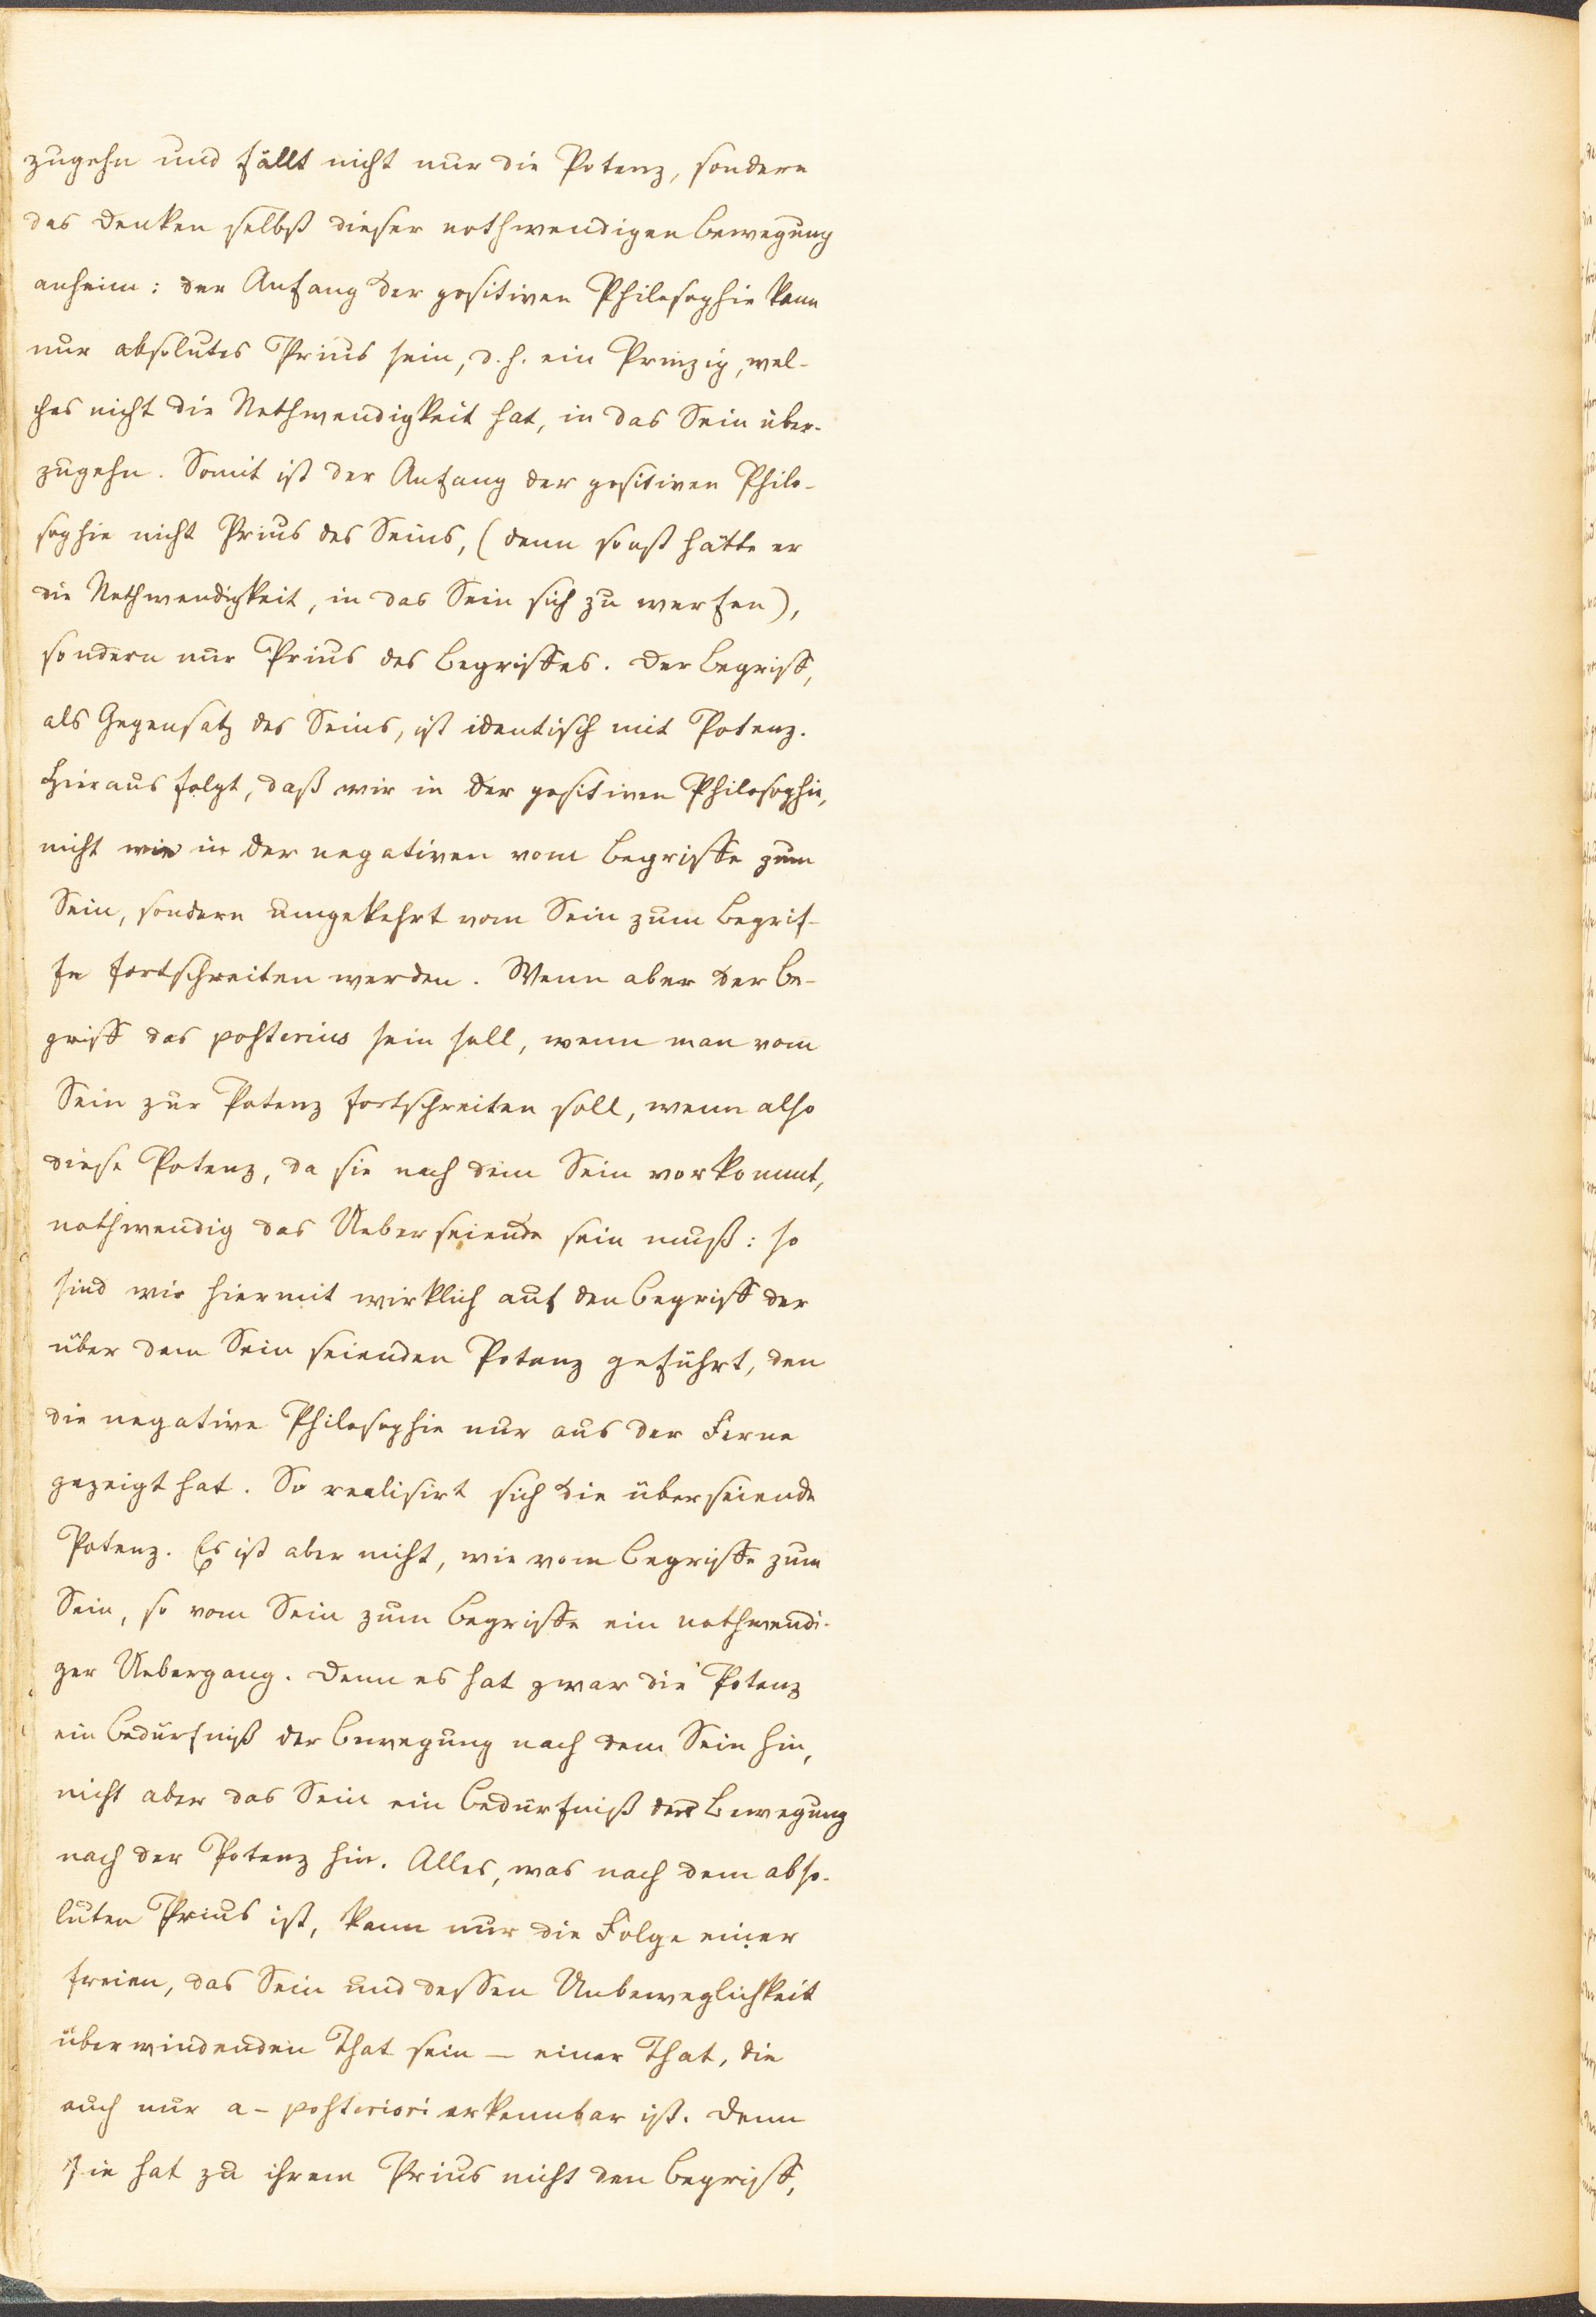 zugehn und fällt nicht nur die Potenz, sondern
das Denken selbst dieser nothwendigen Bewegung
anheim: der Anfang der positiven Philosophie kann
nur absolutes Prius sein, d. h. ein Prinzip, wel-
ches nicht die Nothwendigkeit hat, in das Sein über-
zugehn. Somit ist der Anfang der positiven Philo-
sophie nicht Prius des Seins, (denn sonst hätte er
die Nothwendigkeit, in das Sein sich zu werfen),
sondern nur Prius des Begriffes. Der Begriff,
als Gegensatz des Seins, ist identisch mit Potenz.
Hieraus folgt, daß wir in der positiven Philosophie,
nicht wie in der negativen vom Begriffe zum
Sein, sondern umgekehrt vom Sein zum Begrif-
fe fortschreiten werden. Wenn aber der Be-
griff das posterius sein soll, wenn man vom
Sein zur Potenz fortschreiten soll, wenn also
diese Potenz, da sie nach dem Sein vorkommt,
nothwendig das Ueberseiende sein muß: so
sind wir hiermit wirklich auf den Begriff der
über dem Sein seienden Potenz geführt, den
die negative Philosophie nur aus der Ferne
gezeigt hat. So realisirt sich die überseiende
Potenz. Es ist aber nicht, wie vom Begriffe zum
Sein, so vom Sein zum Begriffe ein nothwendi-
ger Uebergang. Denn es hat zwar die Potenz
ein Bedürfniß der Bewegung nach dem Sein hin,
nicht aber das Sein ein Bedürfniß der Bewegung
nach der Potenz hin. Alles, was nach dem abso-
luten Prius ist, kann nur die Folge einer
freien, das Sein und dessen Unbeweglichkeit
überwindenden That sein – einer That, die
auch nur a-posteriori erkennbar ist. Denn
sie hat zu ihrem Prius nicht den Begriff,